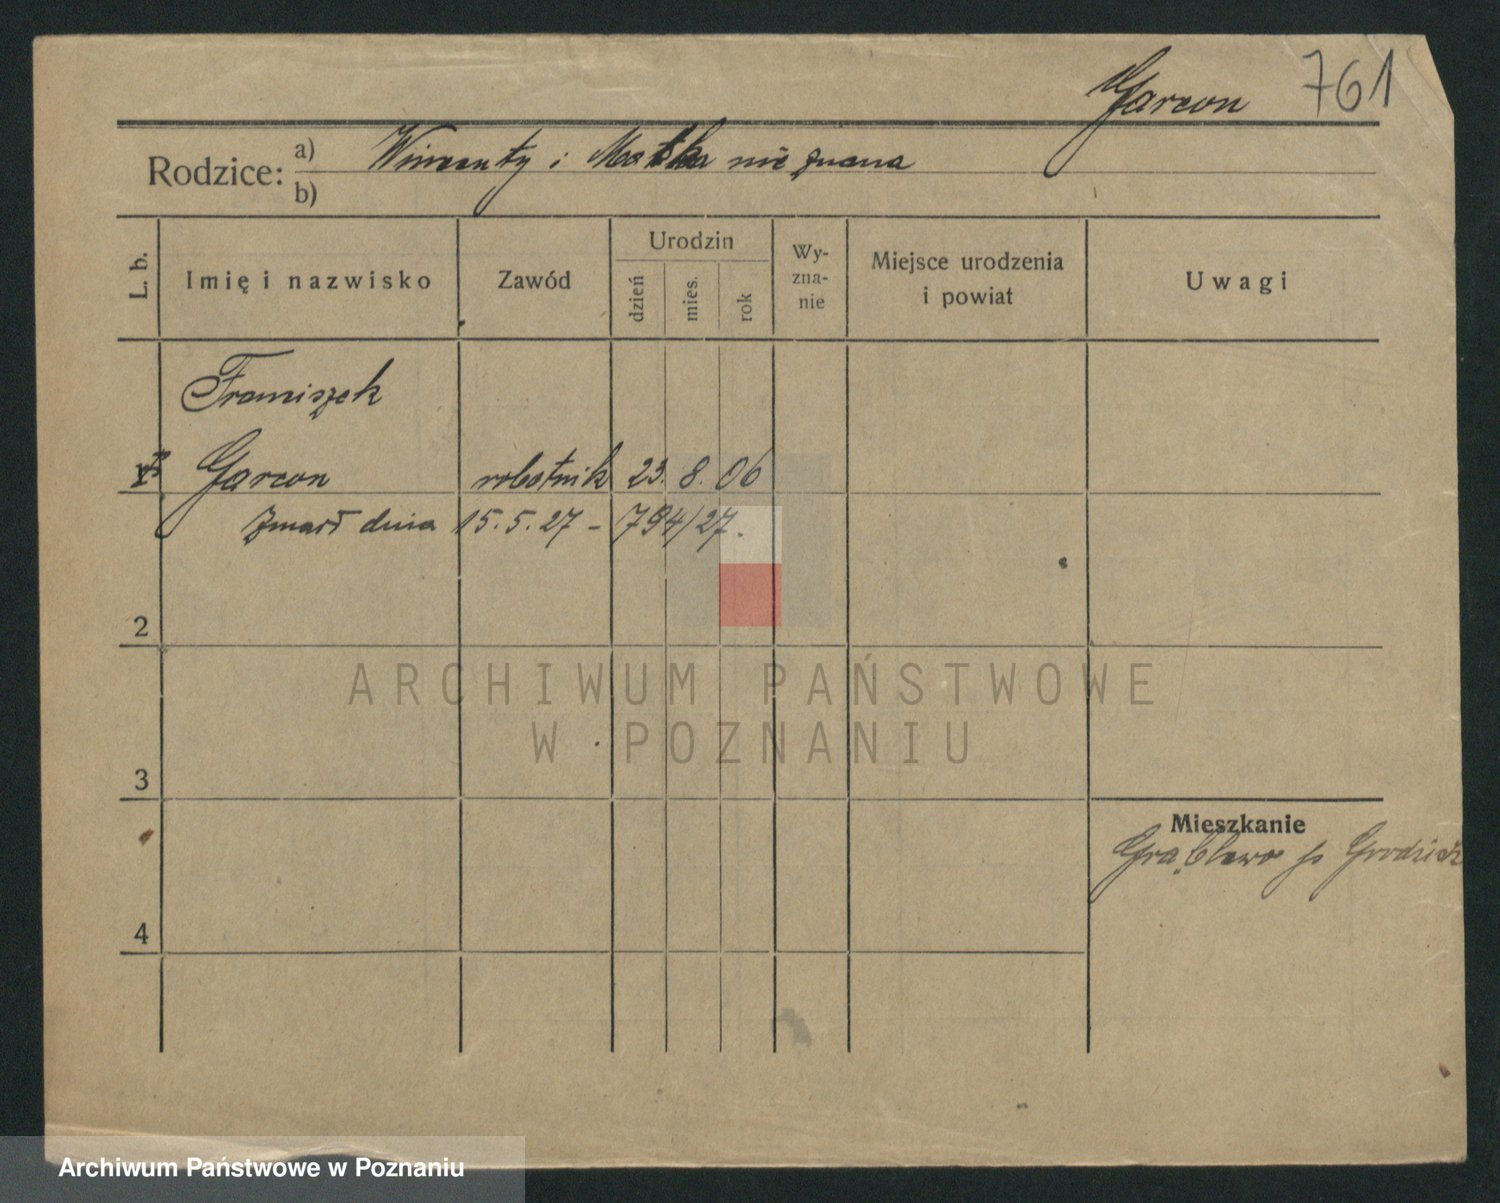 Garcon 761
Rodzice: a) Wincenty i Matka nie znana
b)
L. b.
Imię i nazwisko
Zawód
Urodzin
dzień
mies.
rok
Wy-
zna-
nie
Miejsce urodzenia
i powiat
Uwagi
Franciszek
Garcon robotnik 23. 8. 06
zmarł dnia 15. 5. 27 - 794/27.
2
ARCHIWUM PAŃSTWOWE
W POZNANIU
3
Mieszkanie
Grąblewo p Grodzisk
4
Archiwum Państwowe w Poznaniu